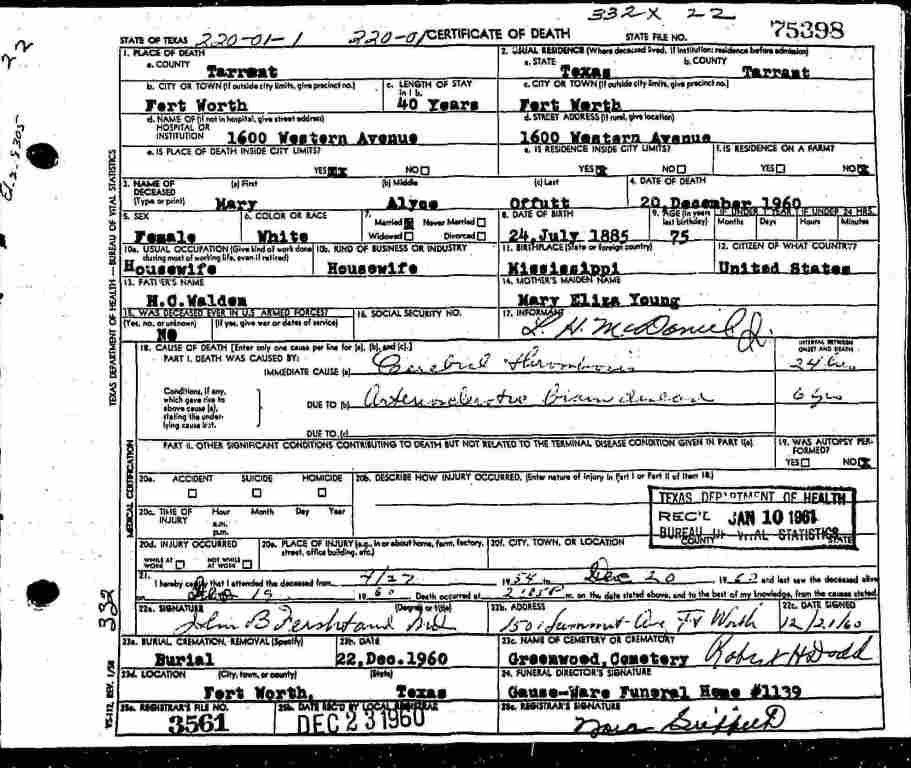 332 X 22
STATE OF TEXAS 220-01-1 220-01 CERTIFICATE OF DEATH STATE FILE NO. 75398
1. PLACE OF DEATH 2. USUAL RESIDENCE (Where deceased lived. If institution: residence before admission)
a. COUNTY a. STATE b. COUNTY
Tarrant Texas Tarrant
b. CITY OR TOWN (If outside city limits, give precinct no.) c. LENGTH OF STAY in 1 b. c. CITY OR TOWN (If outside city limits, give precinct no.)
Fort Worth 40 Years Fort Worth
d. NAME OF (If not in hospital, give street address) HOSPITAL OR INSTITUTION d. STREET ADDRESS (If rural, give location)
1600 Western Avenue 1600 Western Avenue
e. IS PLACE OF DEATH INSIDE CITY LIMITS? e. IS RESIDENCE INSIDE CITY LIMITS? f. IS RESIDENCE ON A FARM?
YES NO YES NO YES NO
3. NAME OF DECEASED (Type or print) (a) First (b) Middle (c) Last 4. DATE OF DEATH
Mary Alyne Offutt 20 December 1960
5. SEX 6. COLOR OR RACE 7. Married Never Married Widowed Divorced 8. DATE OF BIRTH 9. AGE (In years last birthday) IF UNDER 1 YEAR IF UNDER 24 HRS.
Months Days Hours Minutes
Female White 24, July 1885 75
10a. USUAL OCCUPATION (Give kind of work done during most of working life, even if retired) 10b. KIND OF BUSINESS OR INDUSTRY 11. BIRTHPLACE (State or foreign country) 12. CITIZEN OF WHAT COUNTRY?
Housewife Housewife Mississippi United States
13. FATHER'S NAME 14. MOTHER'S MAIDEN NAME
H.C. Walden Mary Eliza Young
15. WAS DECEASED EVER IN U.S ARMED FORCES? 16. SOCIAL SECURITY NO. 17. INFORMANT
(Yes, no, or unknown) (If yes, give war or dates of service)
No L. H. McDaniel Jr.
18. CAUSE OF DEATH [Enter only one cause per line for (a), (b), and (c).] INTERVAL BETWEEN ONSET AND DEATH
PART I. DEATH WAS CAUSED BY:
IMMEDIATE CAUSE (a) Cerebral Thrombosis 24 hrs.
Conditions, if any, which gave rise to above cause (a), stating the underlying cause last.
DUE TO (b) 6 yrs
DUE TO (c)
PART II. OTHER SIGNIFICANT CONDITIONS CONTRIBUTING TO DEATH BUT NOT RELATED TO THE TERMINAL DISEASE CONDITION GIVEN IN PART I(a) 19. WAS AUTOPSY PERFORMED?
YES NO
20a. ACCIDENT SUICIDE HOMICIDE 20b. DESCRIBE HOW INJURY OCCURRED. (Enter nature of injury in Part I or Part II of Item 18.)
TEXAS DEPARTMENT OF HEALTH
REC'L JAN 10 1961
BUREAU OF VITAL STATISTICS
20c. TIME OF INJURY Hour Month Day Year
a.m.
p.m.
20d. INJURY OCCURRED 20e. PLACE OF INJURY (e.g., in or about home, farm, factory, street, office building, etc.) 20f. CITY, TOWN, OR LOCATION COUNTY STATE
WHILE AT WORK NOT WHILE AT WORK
21. I hereby certify that I attended the deceased from 7/27 1954 to Dec 20 1960 and last saw the deceased alive
19 1960 Death occurred at m. on the date stated above, and to the best of my knowledge, from the causes stated.
22a. SIGNATURE (Degree or title) 22b. ADDRESS 22c. DATE SIGNED
John B 1501 Summit Ave Ft Worth 12/21/60
23a. BURIAL, CREMATION, REMOVAL (Specify) 23b. DATE 23c. NAME OF CEMETERY OR CREMATORY
Burial 22, Dec. 1960 Greenwood, Cemetery Robert H Dodd
23d. LOCATION (City, town, or county) (State) 24. FUNERAL DIRECTOR'S SIGNATURE
Fort Worth, Texas Gause-Ware Funeral Home #1139
25a. REGISTRAR'S FILE NO. 25b. DATE REC'D BY LOCAL REGISTRAR 25c. REGISTRAR'S SIGNATURE
3561 DEC 23 1960
TEXAS DEPARTMENT OF HEALTH—BUREAU OF VITAL STATISTICS
MEDICAL CERTIFICATION
332
VS-112, REV. 1/58
22